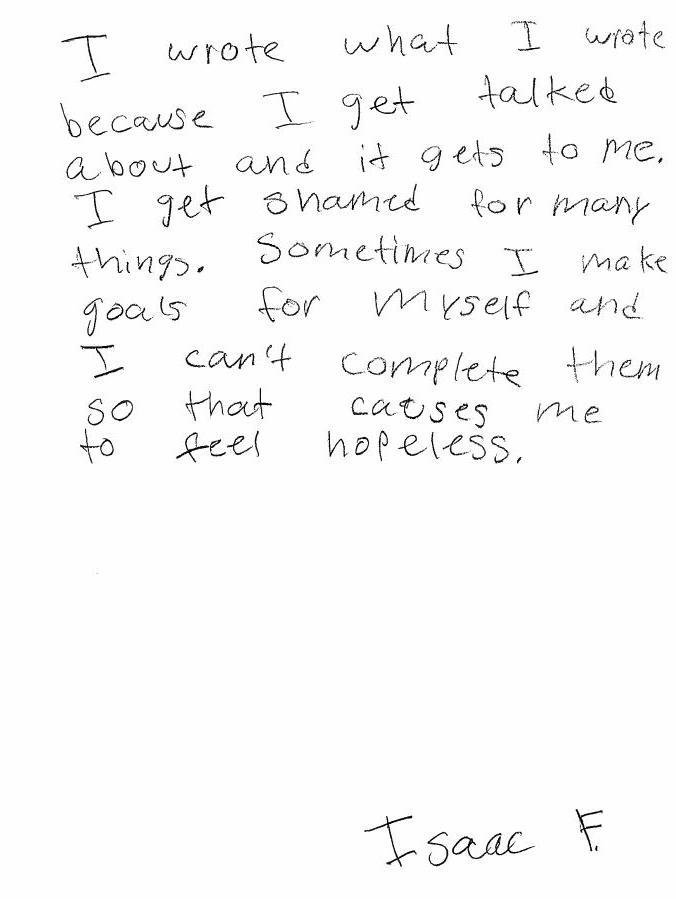 I wrote what I wrote
because I get talked
about and it gets to me.
I get shamed for many
things. Sometimes I make
goals for myself and
I can't complete them
so that causes me
to feel hopeless.
Isaac F.